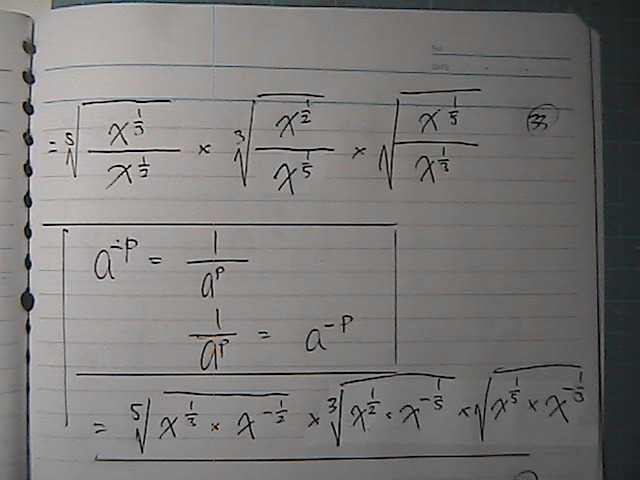 NO.
DATE
= \sqrt[5]{\frac{x^{\frac{1}{3}}}{x^{\frac{1}{2}}}} × \sqrt[3]{\frac{x^{\frac{1}{2}}}{x^{\frac{1}{5}}}} × \sqrt{\frac{x^{\frac{1}{5}}}{x^{\frac{1}{3}}}} 33
a^{-p} = \frac{1}{a^p}
\frac{1}{a^p} = a^{-p}
= \sqrt[5]{x^{\frac{1}{3}} × x^{-\frac{1}{2}}} × \sqrt[3]{x^{\frac{1}{2}} × x^{-\frac{1}{5}}} × \sqrt{x^{\frac{1}{5}} × x^{-\frac{1}{3}}}